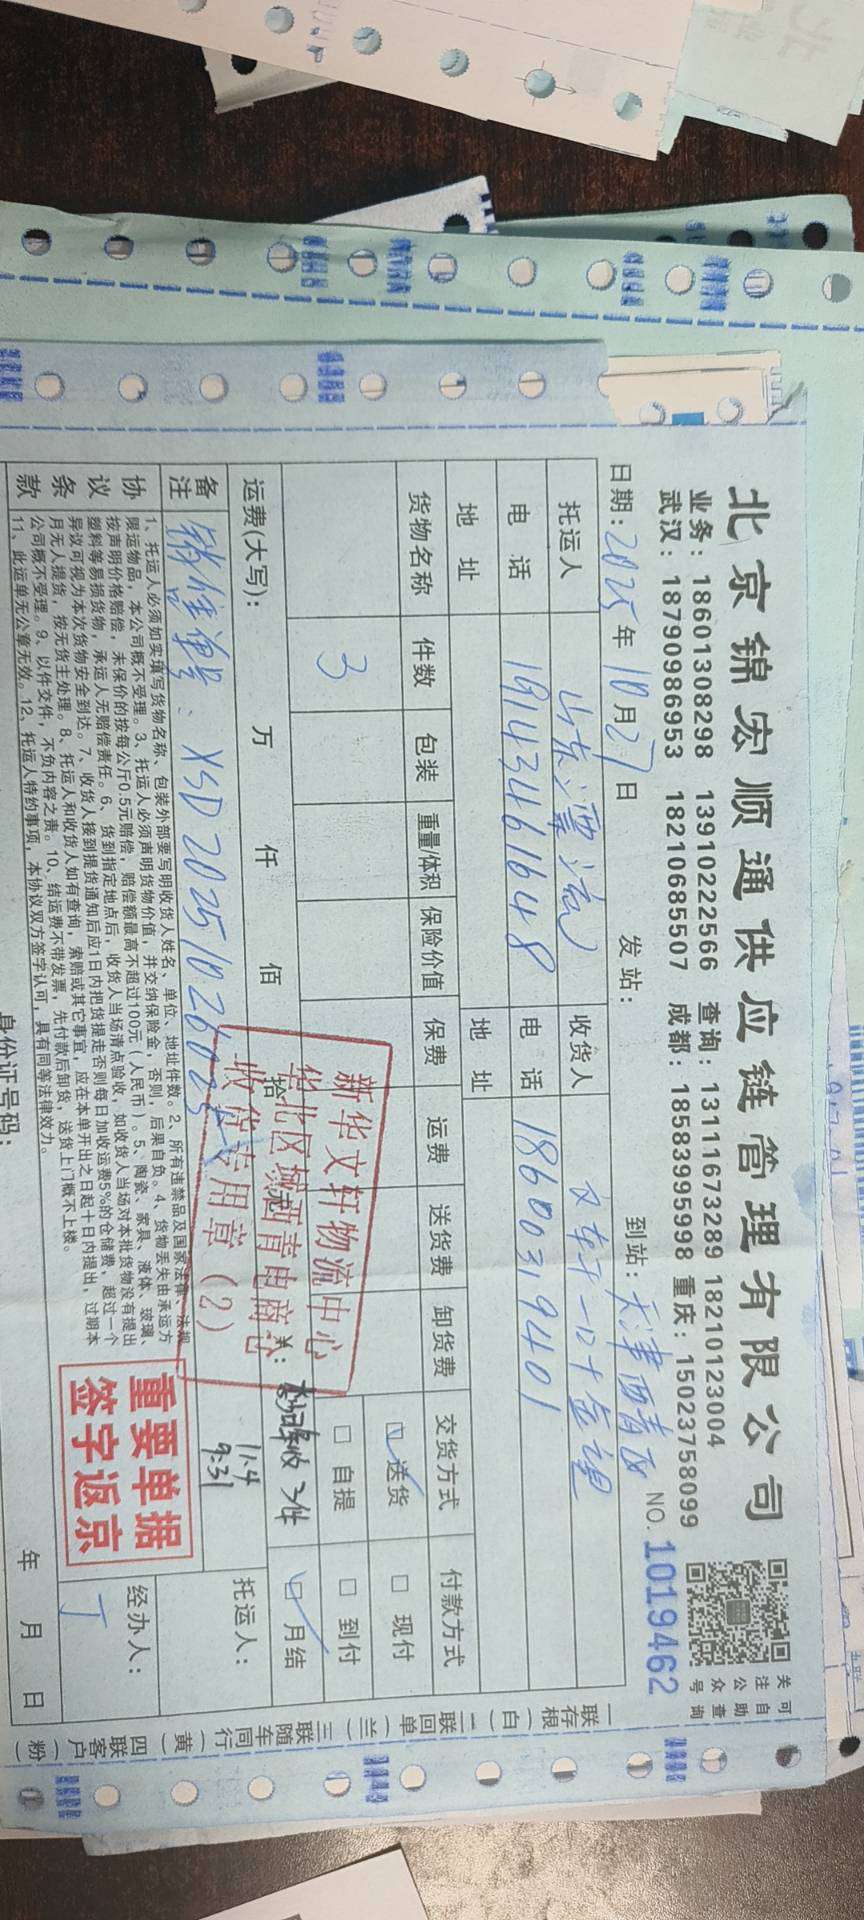 北京锦宏顺通供应链管理有限公司
业务：18601308298 13910222566 查询：13111673289 18210123004
武汉：18790986953 18210685507 成都：18583995998 重庆：15023758099
可自助查询
关注公众号
日期：2025年10月27日 发站： 到站：天津西青区 NO. 1019462
托运人 山东 收货人 文轩
电话 19143461648 电话 18600319401
地址 地址
货物名称 件数 包装 重量/体积 保险价值 保费 运费 送货费 卸货费 交货方式 付款方式
3 送货 现付
自提 到付
运费(大写)： 万 仟 佰 拾 收 3件 月结
备注 销售单号：XSD20251026025
11.4
9:31
托运人：
新华文轩物流中心
华北区域西青电商仓
收货专用章（2）
协议条款
1、托运人必须如实填写货物名称、包装外部要写明收货人姓名、单位、地址件数。2、所有违禁品及国家法律、法规
限运物品，本公司概不受理。3、托运人必须声明货物价值，并交纳保险金，否则，后果自负。4、货物丢失由承运方
按声明价格赔偿，未保价的按每公斤0.5元赔偿，赔偿额最高不超过100元（人民币）。5、陶瓷、家具、液体、玻璃、
塑料等易损货物，承运人无赔偿责任。6、货到指定地点后，收货人当场清点验收，如收货人当场对本批货物没有提出
异议可视为本次货物安全到达。7、收货人接到提货通知后应1日内把货提走否则每日加收运费5%的仓储费，超过一个
月无人提货，按无货主处理。8、托运人和收货人如有查询，索赔或其它事宜，应在本单开出之日起十日内提出，过期本
公司概不受理。9、以件交件，不负内容之责。10、结运费不带发票，先付款后卸货，送货上门概不上楼。
11、此运单无公章无效。12、托运人特约事项，本协议双方签字认可，具有同等法律效力。
重要单据
签字返京
经办人：
丁
身份证号码：
年 月 日
一联存根（白） 二联回单（兰） 三联随车同行（黄） 四联客户（粉）